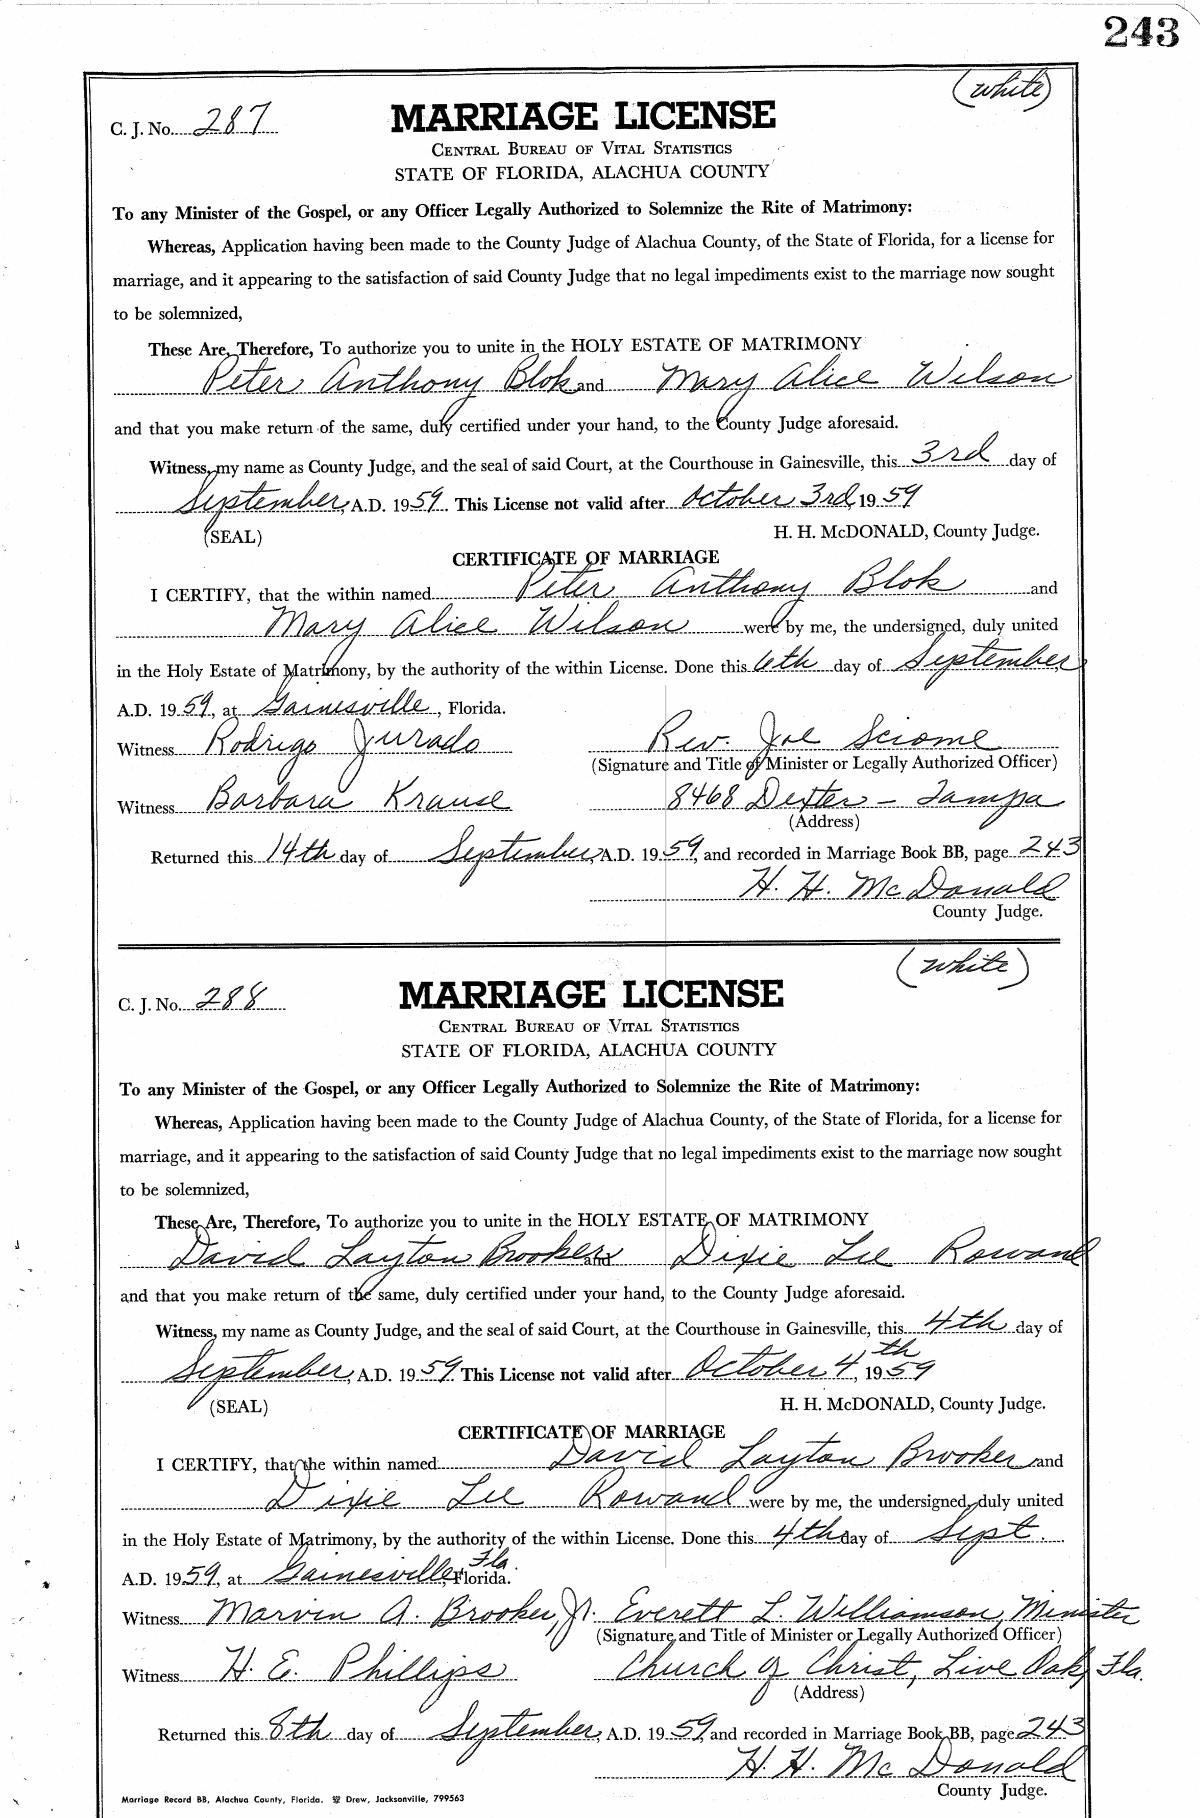 243
(white)
C. J. No. 287
MARRIAGE LICENSE
CENTRAL BUREAU OF VITAL STATISTICS
STATE OF FLORIDA, ALACHUA COUNTY
To any Minister of the Gospel, or any Officer Legally Authorized to Solemnize the Rite of Matrimony:
Whereas, Application having been made to the County Judge of Alachua County, of the State of Florida, for a license for
marriage, and it appearing to the satisfaction of said County Judge that no legal impediments exist to the marriage now sought
to be solemnized,
These Are, Therefore, To authorize you to unite in the HOLY ESTATE OF MATRIMONY
Peter Anthony Blok and Mary Alice Wilson
and that you make return of the same, duly certified under your hand, to the County Judge aforesaid.
Witness, my name as County Judge, and the seal of said Court, at the Courthouse in Gainesville, this 3rd day of
September, A.D. 1959. This License not valid after October 3rd, 1959
(SEAL) H. H. McDONALD, County Judge.
CERTIFICATE OF MARRIAGE
I CERTIFY, that the within named Peter Anthony Blok and
Mary Alice Wilson were by me, the undersigned, duly united
in the Holy Estate of Matrimony, by the authority of the within License. Done this 6th day of September,
A.D. 1959, at Gainesville, Florida.
Witness Rodrigo Jurado Rev. Joe Sciome
(Signature and Title of Minister or Legally Authorized Officer)
Witness Barbara Krause 8468 Dexter - Tampa
(Address)
Returned this 14th day of September, A.D. 1959, and recorded in Marriage Book BB, page 243
H. H. McDonald
County Judge.
(white)
C. J. No. 288
MARRIAGE LICENSE
CENTRAL BUREAU OF VITAL STATISTICS
STATE OF FLORIDA, ALACHUA COUNTY
To any Minister of the Gospel, or any Officer Legally Authorized to Solemnize the Rite of Matrimony:
Whereas, Application having been made to the County Judge of Alachua County, of the State of Florida, for a license for
marriage, and it appearing to the satisfaction of said County Judge that no legal impediments exist to the marriage now sought
to be solemnized,
These Are, Therefore, To authorize you to unite in the HOLY ESTATE OF MATRIMONY
David Layton Brooker and Dixie Lee Rowand
and that you make return of the same, duly certified under your hand, to the County Judge aforesaid.
Witness, my name as County Judge, and the seal of said Court, at the Courthouse in Gainesville, this 4th day of
September, A.D. 1959. This License not valid after October 4th, 1959
(SEAL) H. H. McDONALD, County Judge.
CERTIFICATE OF MARRIAGE
I CERTIFY, that the within named David Layton Brooker and
Dixie Lee Rowand were by me, the undersigned, duly united
in the Holy Estate of Matrimony, by the authority of the within License. Done this 4th day of Sept.
A.D. 1959, at Gainesville, Fla Florida.
Witness Marvin A. Brooker, Jr. Everett L. Williamson, Minister
(Signature and Title of Minister or Legally Authorized Officer)
Witness H. E. Phillips Church of Christ, Live Oak, Fla.
(Address)
Returned this 8th day of September, A.D. 1959, and recorded in Marriage Book BB, page 243
H. H. McDonald
County Judge.
Marriage Record BB, Alachua County, Florida. Drew, Jacksonville, 799563